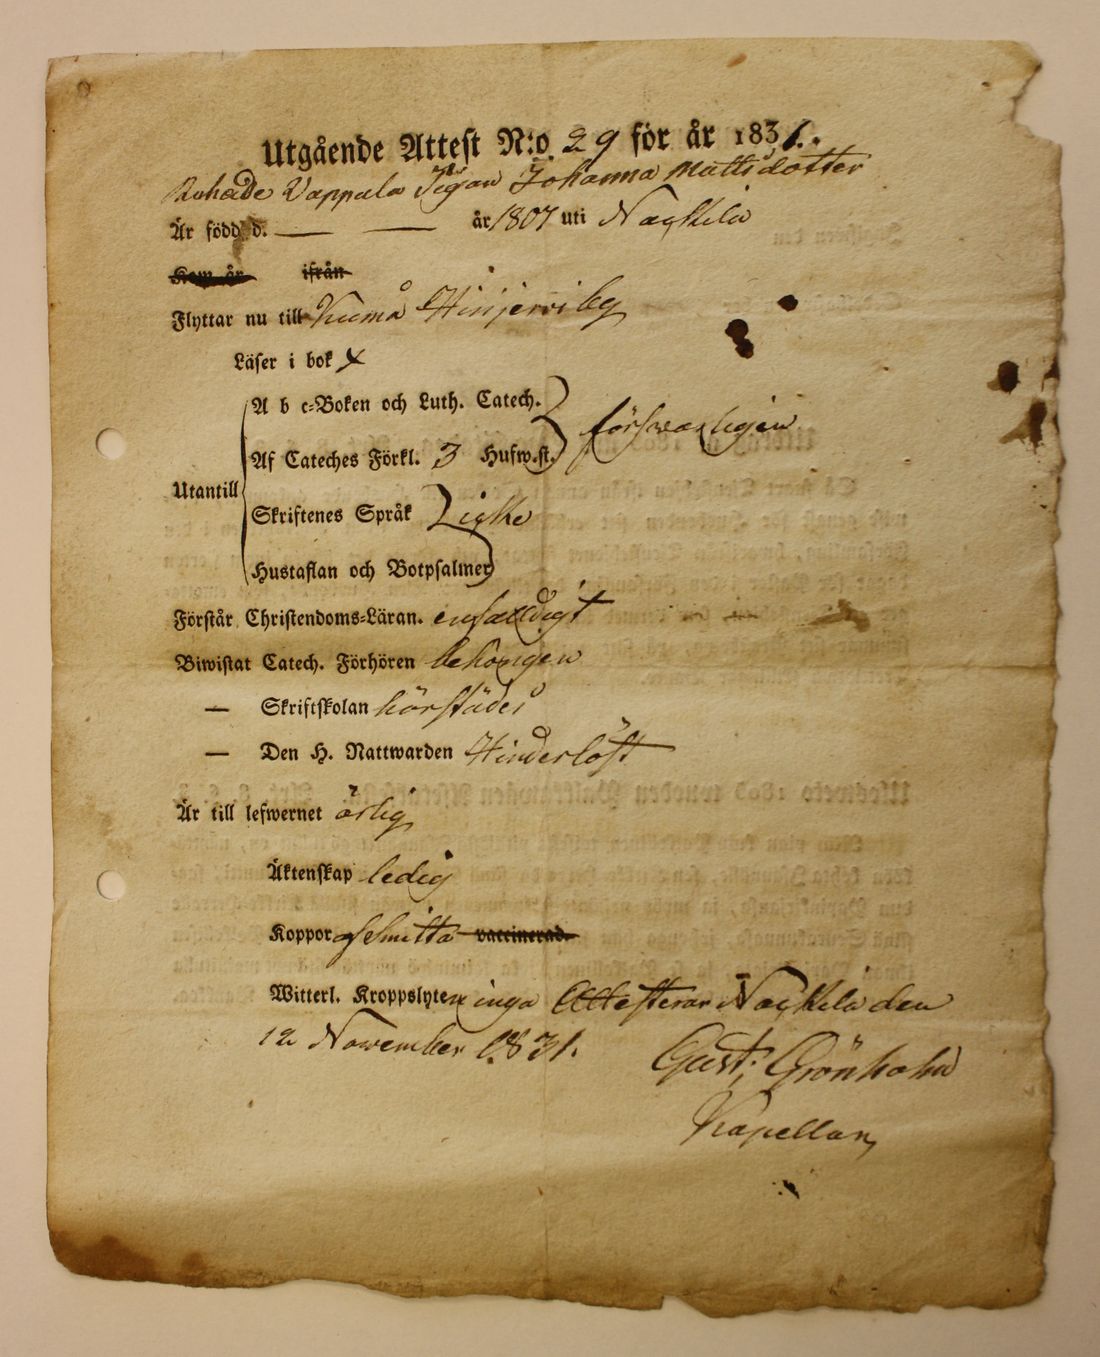 Utgående Attest N:o 29 för år 1831.
Vappula Johanna Mattsdotter
Är född d. — — år 1807 uti Nackila
Kom år ifrån
Flyttar nu till Kumå Hinjervi by
Läser i bok x
A b c-Boken och Luth. Catech.
försvarligen
Af Cateches Förkl. 3 Hufw.st.
Utantill
Skriftenes Språk Licka
Hustaflan och Botpsalmer
Förstår Christendoms-Läran. enfaldigt
Biwistat Catech. Förhören behörigen
— Skriftskolan härstädes
— Den H. Nattwarden Hinderlöst
Är till lefwernet ärlig
Äktenskap ledig
Koppor af smitta vaccinerad.
Witterl. Kroppslyten inga Attesterar Nackila den
12 November 1831.
Gust. Grönholm
Kapellan